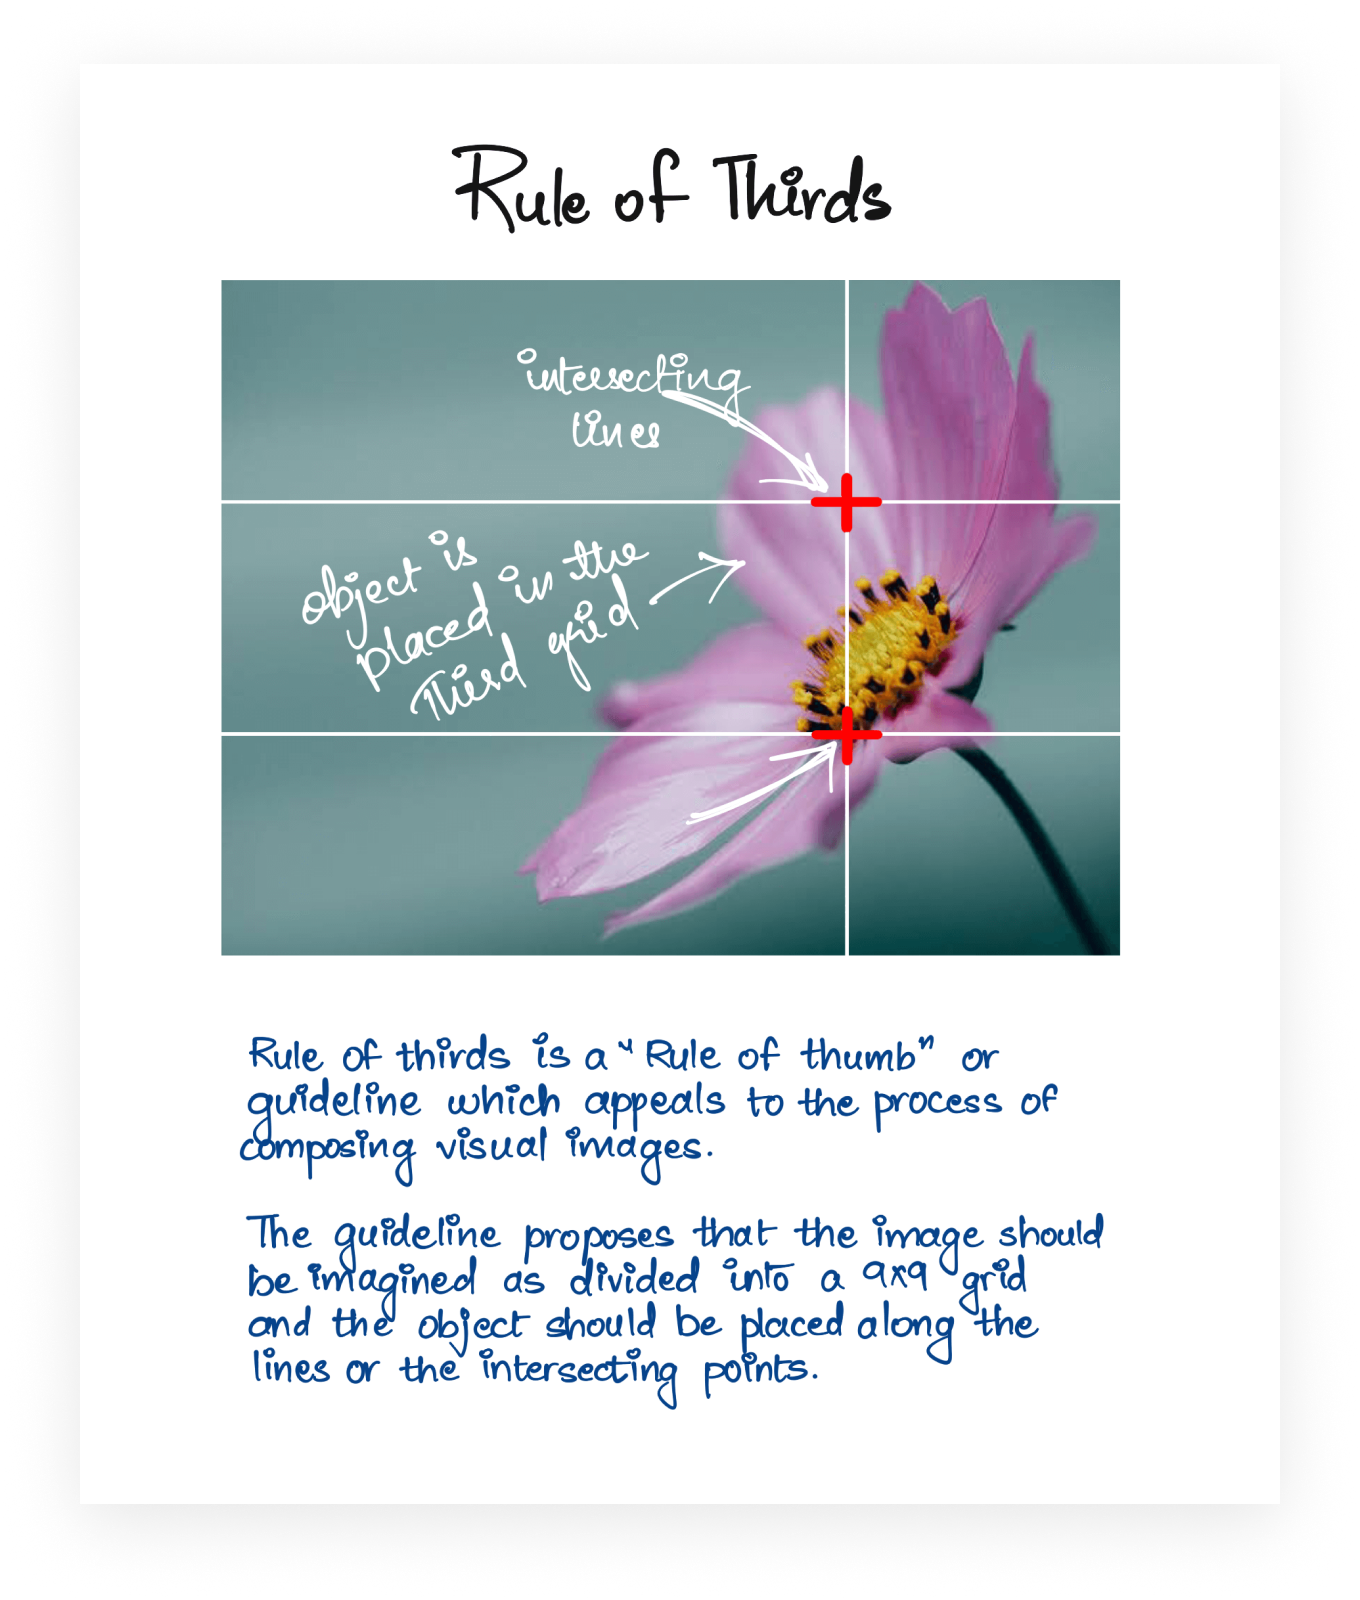 Rule of Thirds
intersecting
lines
object is
placed in the
Third grid
Rule of thirds is a "Rule of thumb" or
guideline which appeals to the process of
composing visual images.
The guideline proposes that the image should
be imagined as divided into a 9x9 grid
and the object should be placed along the
lines or the intersecting points.